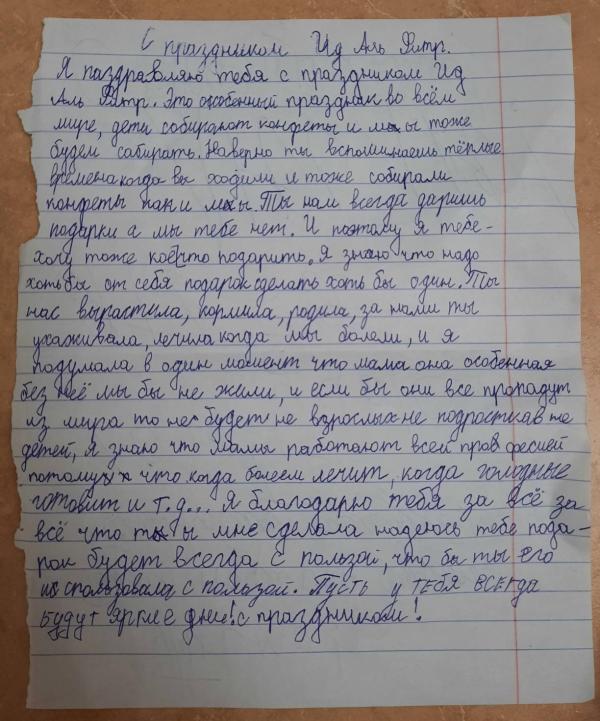 С праздником Ид Аль Фитр.
Я паздравляю тебя с праздником Ид
Аль Фитр. Это особенный праздник во всём
мире, дети собирают конфеты и мы тоже
будем сабирать. Наверно ты вспоминаешь тёплые
времена когда вы ходили и тоже собирали
конфеты как и мы. Ты нам всегда даришь
подарки а мы тебе нет. И поэтому я тебе-
хочу тоже кое что подарить. Я знаю что надо
хотьбы от себя подарок сделать хоть бы один. Ты
нас вырастила, кормила, родила, за нами ты
ухаживала, лечила когда мы болели, и я
подумала в один момент что мама она особенная
без неё мы бы не жили, и если бы они все пропадут
из мира то не будет не взрослых не подростков не
детей, я знаю что мамы работают всей прав фесией
потому что когда болеем лечит, когда голодные
готовит и т.д... Я благодарю тебя за всё за
всё что ты мне сделала надеюсь тебе пода-
рок будет всегда с пользай, что бы ты его
использовала с пользой. Пусть у тебя всегда
будут яркие дни! с праздником!